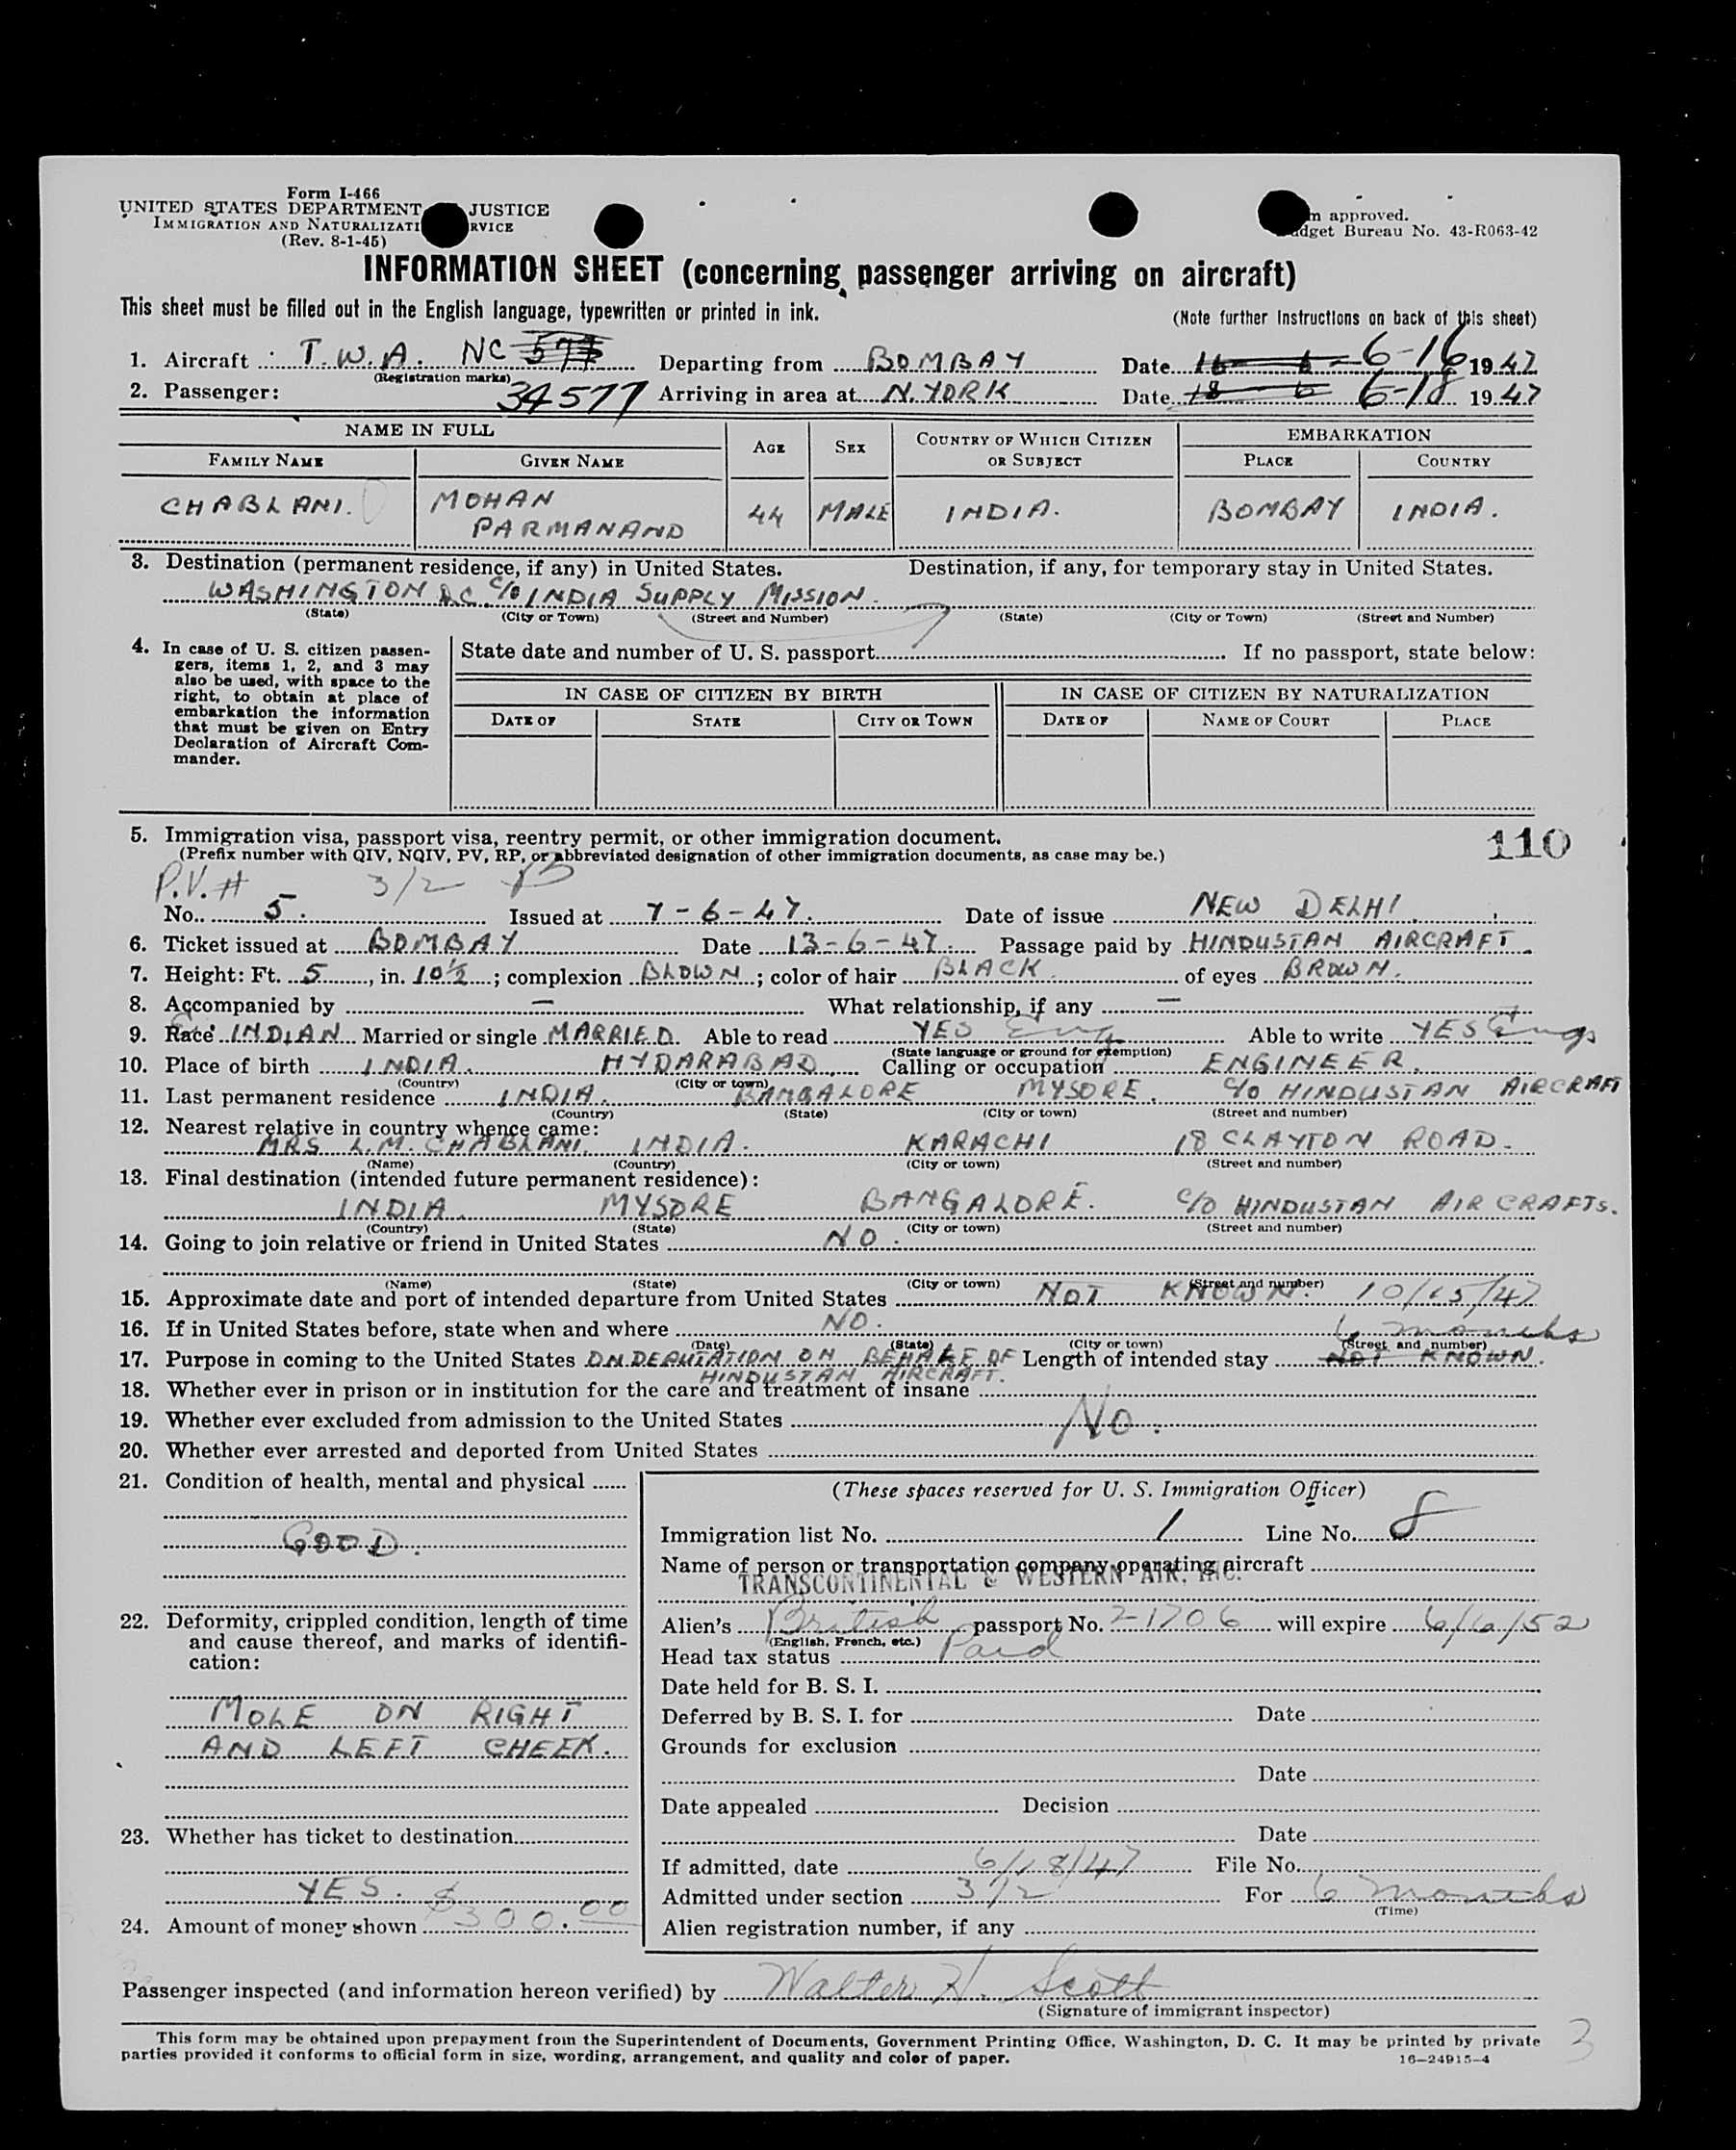 Form I-466
UNITED STATES DEPARTMENT JUSTICE
IMMIGRATION AND NATURALIZATI RVICE
(Rev. 8-1-45)
m approved.
dget Bureau No. 43-R063-42
INFORMATION SHEET (concerning passenger arriving on aircraft)
This sheet must be filled out in the English language, typewritten or printed in ink.
(Note further instructions on back of this sheet)
1. Aircraft T.W.A. NC 577 Departing from BOMBAY Date 16 - 6 - 6-16 1947
(Registration marks)
2. Passenger: 34577 Arriving in area at N.YORK Date 18 - 6 6-18 1947
NAME IN FULL AGE SEX COUNTRY OF WHICH CITIZEN OR SUBJECT EMBARKATION
FAMILY NAME GIVEN NAME PLACE COUNTRY
CHABLANI. MOHAN PARMANAND 44 MALE INDIA. BOMBAY INDIA.
3. Destination (permanent residence, if any) in United States. Destination, if any, for temporary stay in United States.
WASHINGTON D.C. C/O INDIA SUPPLY MISSION.
(State) (City or Town) (Street and Number) (State) (City or Town) (Street and Number)
4. In case of U. S. citizen passen-
gers, items 1, 2, and 3 may
also be used, with space to the
right, to obtain at place of
embarkation the information
that must be given on Entry
Declaration of Aircraft Com-
mander.
State date and number of U. S. passport If no passport, state below:
IN CASE OF CITIZEN BY BIRTH IN CASE OF CITIZEN BY NATURALIZATION
DATE OF STATE CITY OR TOWN DATE OF NAME OF COURT PLACE
5. Immigration visa, passport visa, reentry permit, or other immigration document.
110
(Prefix number with QIV, NQIV, PV, RP, or abbreviated designation of other immigration documents, as case may be.)
P.V. # 3/2
No. 5. Issued at 7-6-47. Date of issue NEW DELHI.
6. Ticket issued at BOMBAY Date 13-6-47. Passage paid by HINDUSTAN AIRCRAFT.
7. Height: Ft. 5, in. 10½; complexion BLOWN; color of hair BLACK. of eyes BROWN.
8. Accompanied by — What relationship, if any —
9. Race INDIAN Married or single MARRIED. Able to read YES Eng Able to write YES Eng
(State language or ground for exemption)
10. Place of birth INDIA. HYDARABAD. Calling or occupation ENGINEER.
(Country) (City or town)
11. Last permanent residence INDIA. BANGALORE MYSORE. C/O HINDUSTAN AIRCRAFT
(Country) (State) (City or town) (Street and number)
12. Nearest relative in country whence came:
MRS L.M. CHABLANI. INDIA. KARACHI 18 CLAYTON ROAD.
(Name) (Country) (City or town) (Street and number)
13. Final destination (intended future permanent residence):
INDIA. MYSORE BANGALORE. C/O HINDUSTAN AIRCRAFTS.
(Country) (State) (City or town) (Street and number)
14. Going to join relative or friend in United States NO.
(Name) (State) (City or town) (Street and number)
15. Approximate date and port of intended departure from United States NOT KNOWN. 10/15/47
16. If in United States before, state when and where NO. 6 months
(Date) (State) (City or town) (Street and number)
17. Purpose in coming to the United States ON DEPUTATION ON BEHALF OF Length of intended stay NOT KNOWN.
HINDUSTAN AIRCRAFT.
18. Whether ever in prison or in institution for the care and treatment of insane
19. Whether ever excluded from admission to the United States No.
20. Whether ever arrested and deported from United States
21. Condition of health, mental and physical
GOOD.
22. Deformity, crippled condition, length of time
and cause thereof, and marks of identifi-
cation:
MOLE ON RIGHT
AND LEFT CHEEK.
23. Whether has ticket to destination
YES.
24. Amount of money shown $300.00
(These spaces reserved for U. S. Immigration Officer)
Immigration list No. 1 Line No. 8
Name of person or transportation company operating aircraft
TRANSCONTINENTAL & WESTERN AIR, INC.
Alien's British passport No. 2-1706 will expire 6/6/52
(English, French, etc.)
Head tax status Paid
Date held for B. S. I.
Deferred by B. S. I. for Date
Grounds for exclusion
Date
Date appealed Decision
Date
If admitted, date 6/18/47 File No.
Admitted under section 3/2 For 6 months
(Time)
Alien registration number, if any
Passenger inspected (and information hereon verified) by Walter H. Scott
(Signature of immigrant inspector)
This form may be obtained upon prepayment from the Superintendent of Documents, Government Printing Office, Washington, D. C. It may be printed by private
parties provided it conforms to official form in size, wording, arrangement, and quality and color of paper.
16—24915-4
3